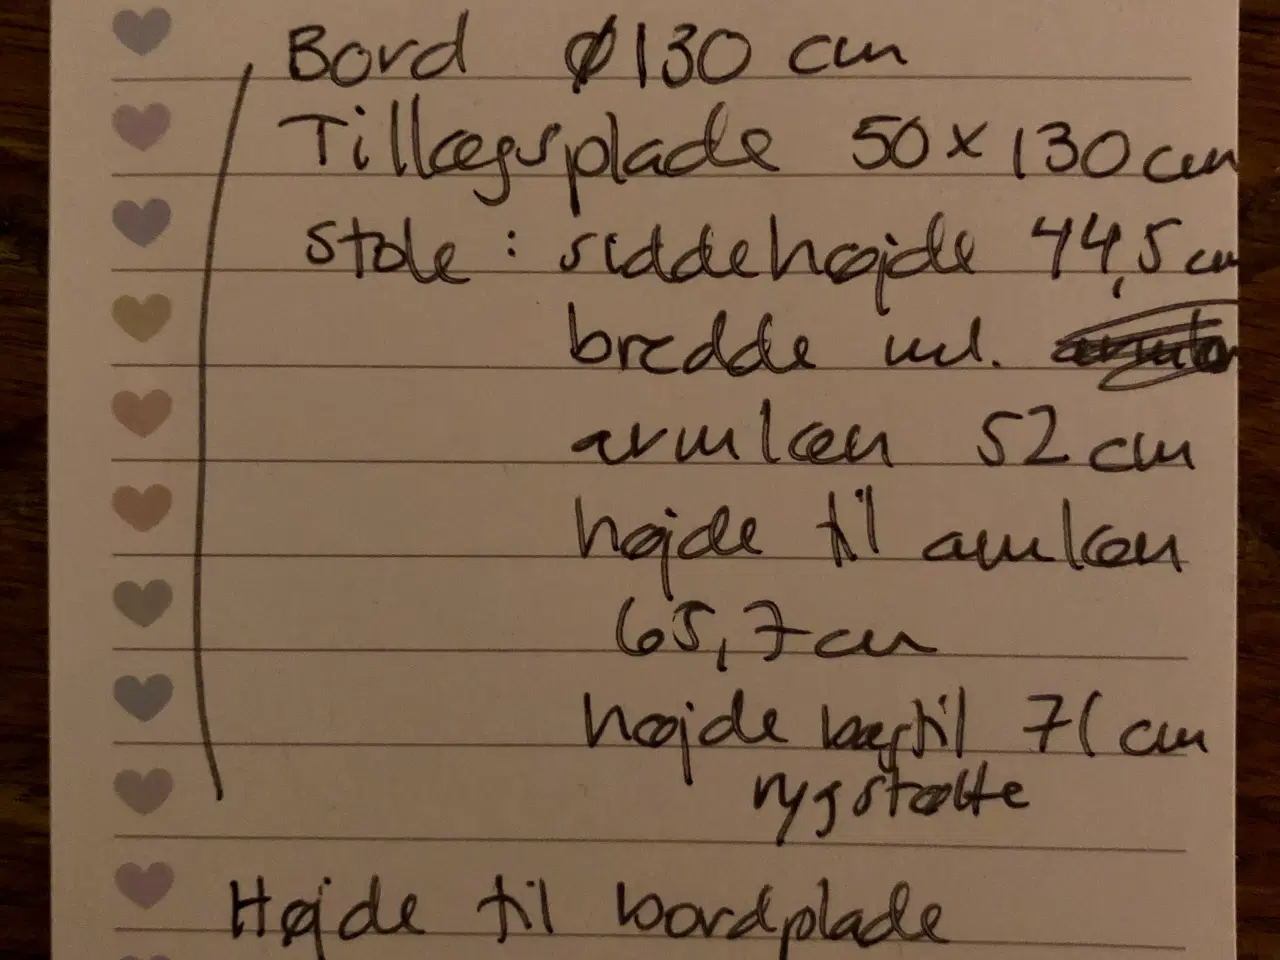 Bord Ø130 cm
Tillægsplade 50 x 130 cm
stole : siddehøjde 44,5 cm
bredde inkl.
armlæn 52 cm
højde til armlæn
65,7 cm
højde bagtil 71 cm
rygstøtte
Højde til bordplade